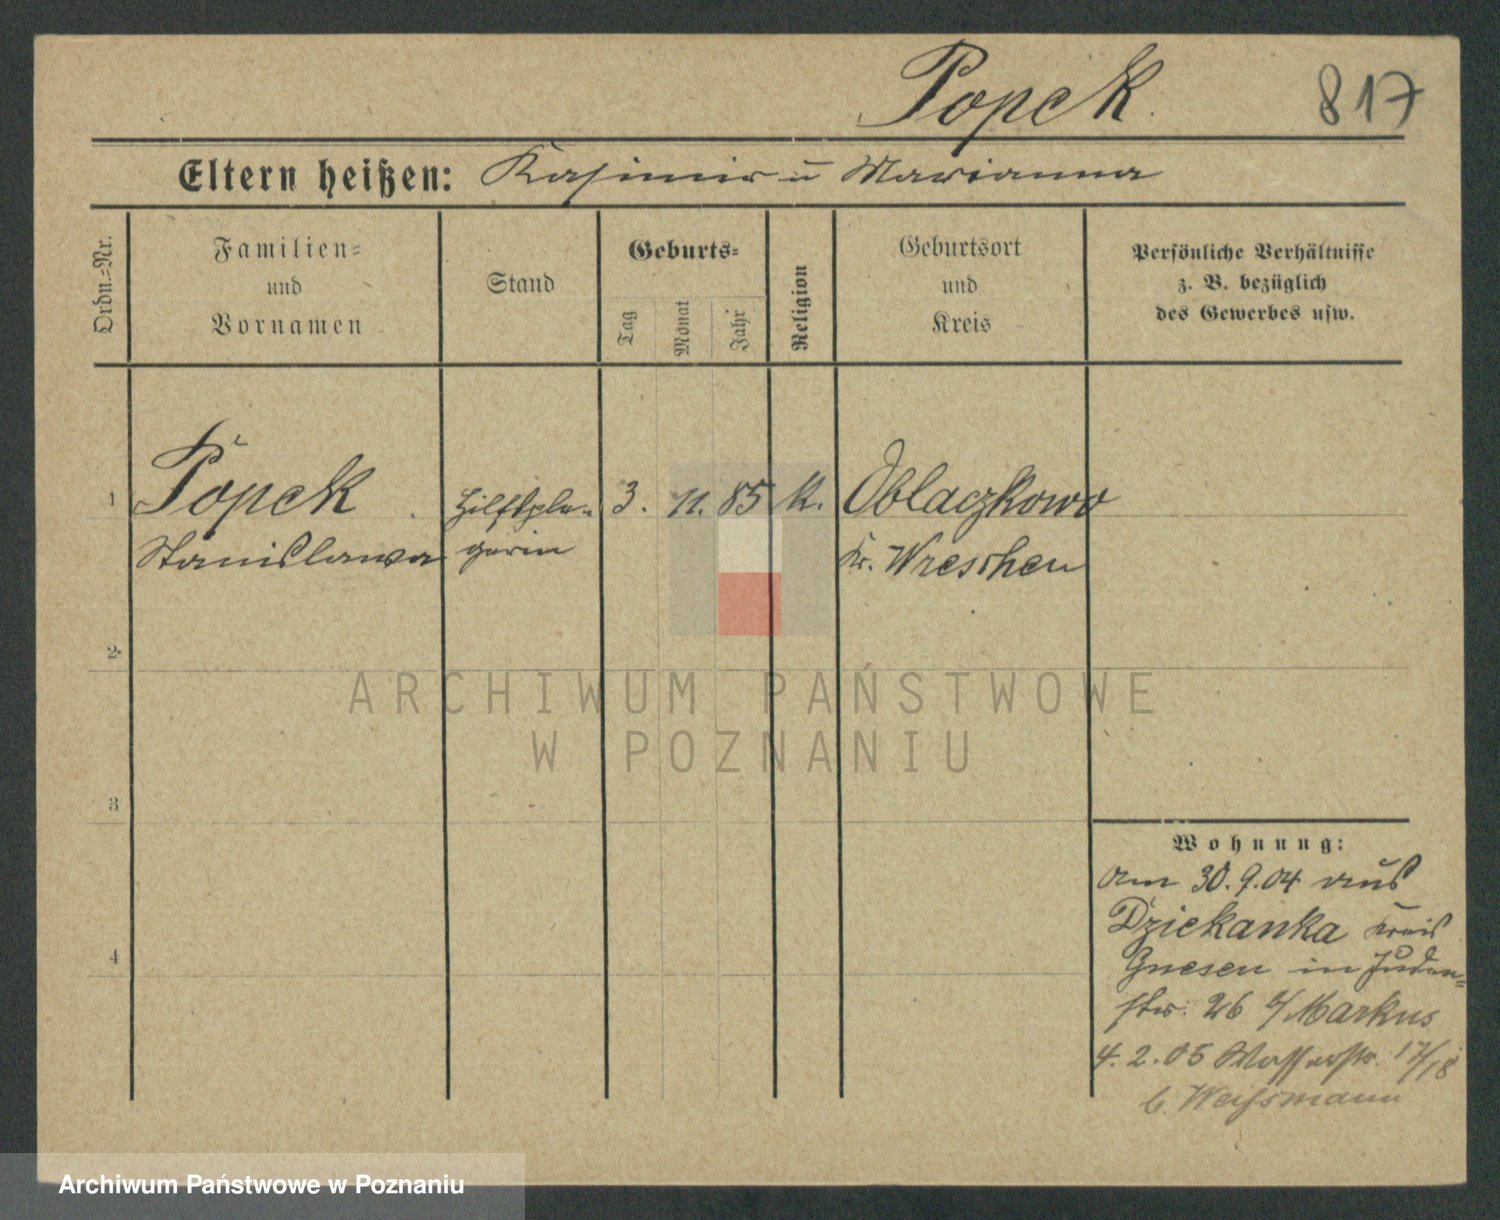 Popek.
817
Eltern heißen: Kasimir u Marianna
Ordn.=Nr.
Familien=
und
Vornamen
Stand
Geburts=
Tag
Monat
Jahr
Religion
Geburtsort
und
Kreis
Persönliche Verhältnisse
z. B. bezüglich
des Gewerbes usw.
1 Popek Hilfspfle- 3. 11. 85 K. Oblaczkowo
Stanislawa gerin Kr. Wreschen
2
3
4
Wohnung:
am 30.9.04 aus
Dziekanka Kreis
Gnesen in Juden=
str. 26 b/Markus
4.2.05 Wasserstr. 17/18
b. Weißmann
ARCHIWUM PAŃSTWOWE
W POZNANIU
Archiwum Państwowe w Poznaniu